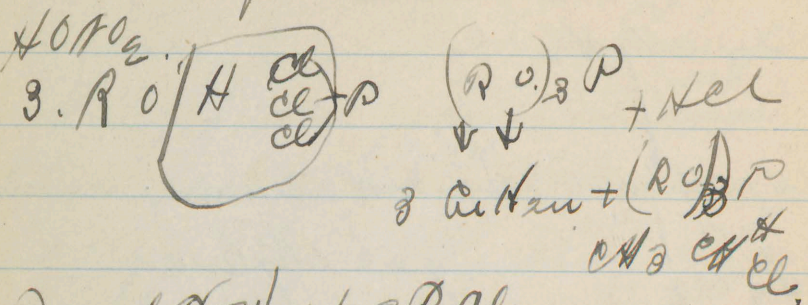 HONO2.
3. R O H Cl Cl Cl P (R O.)3 P + HCl
3 CnH2n + (R O)3 P
CH3 CH H Cl